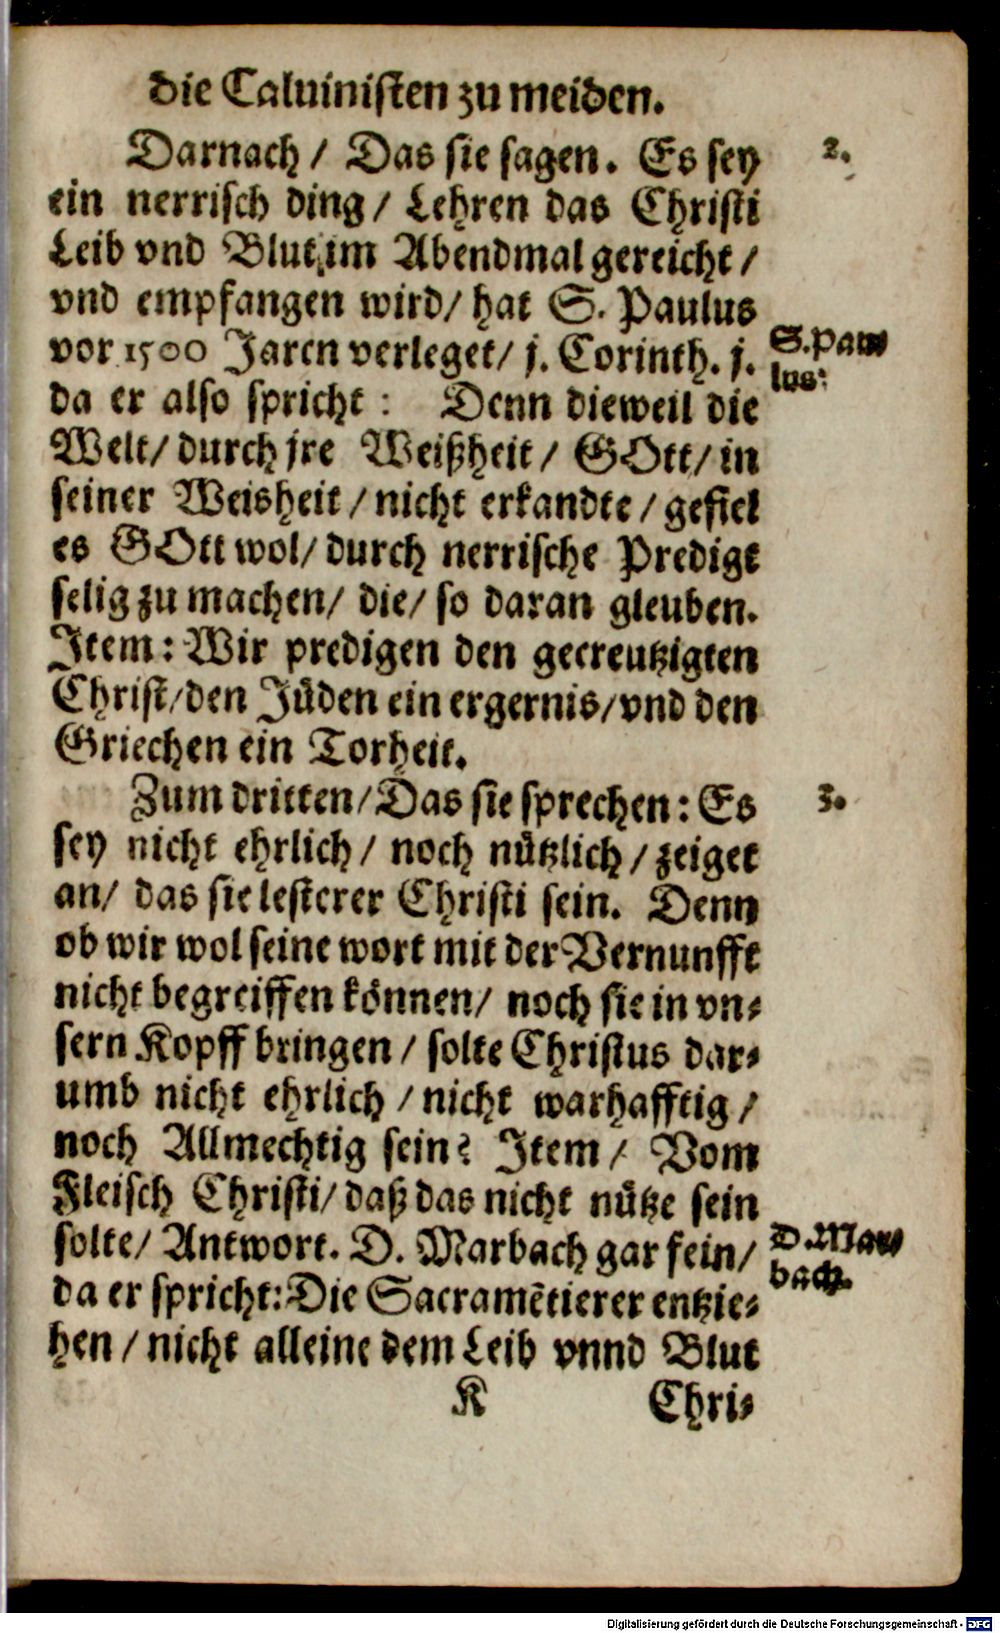 die Caluinisten zu meiden.
Darnach / Das sie sagen. Es sey
2.
ein nerrisch ding / Lehren das Christi
Leib vnd Blut im Abendmal gereicht /
vnd empfangen wird / hat S. Paulus
vor 1500 Jaren verleget / j. Corinth. j.
S. Pau-
lus:
da er also spricht : Denn dieweil die
Welt / durch jre Weißheit / GOtt / in
seiner Weisheit / nicht erkandte / gefiel
es GOtt wol / durch nerrische Predigt
selig zu machen / die / so daran gleuben.
Item : Wir predigen den gecreutzigten
Christ / den Jüden ein ergernis / vnd den
Griechen ein Torheit.
Zum dritten / Das sie sprechen : Es
3.
sey nicht ehrlich / noch nützlich / zeiget
an / das sie lesterer Christi sein. Denn
ob wir wol seine wort mit der Vernunfft
nicht begreiffen können / noch sie in vn-
sern Kopff bringen / solte Christus dar-
umb nicht ehrlich / nicht warhafftig /
noch Allmechtig sein? Item / Vom
Fleisch Christi / daß das nicht nütze sein
solte / Antwort. D. Marbach gar fein /
D. Mar-
bach.
da er spricht: Die Sacramētierer entzie-
hen / nicht alleine dem Leib vnnd Blut
K
Chri-
Digitalisierung gefördert durch die Deutsche Forschungsgemeinschaft - DFG